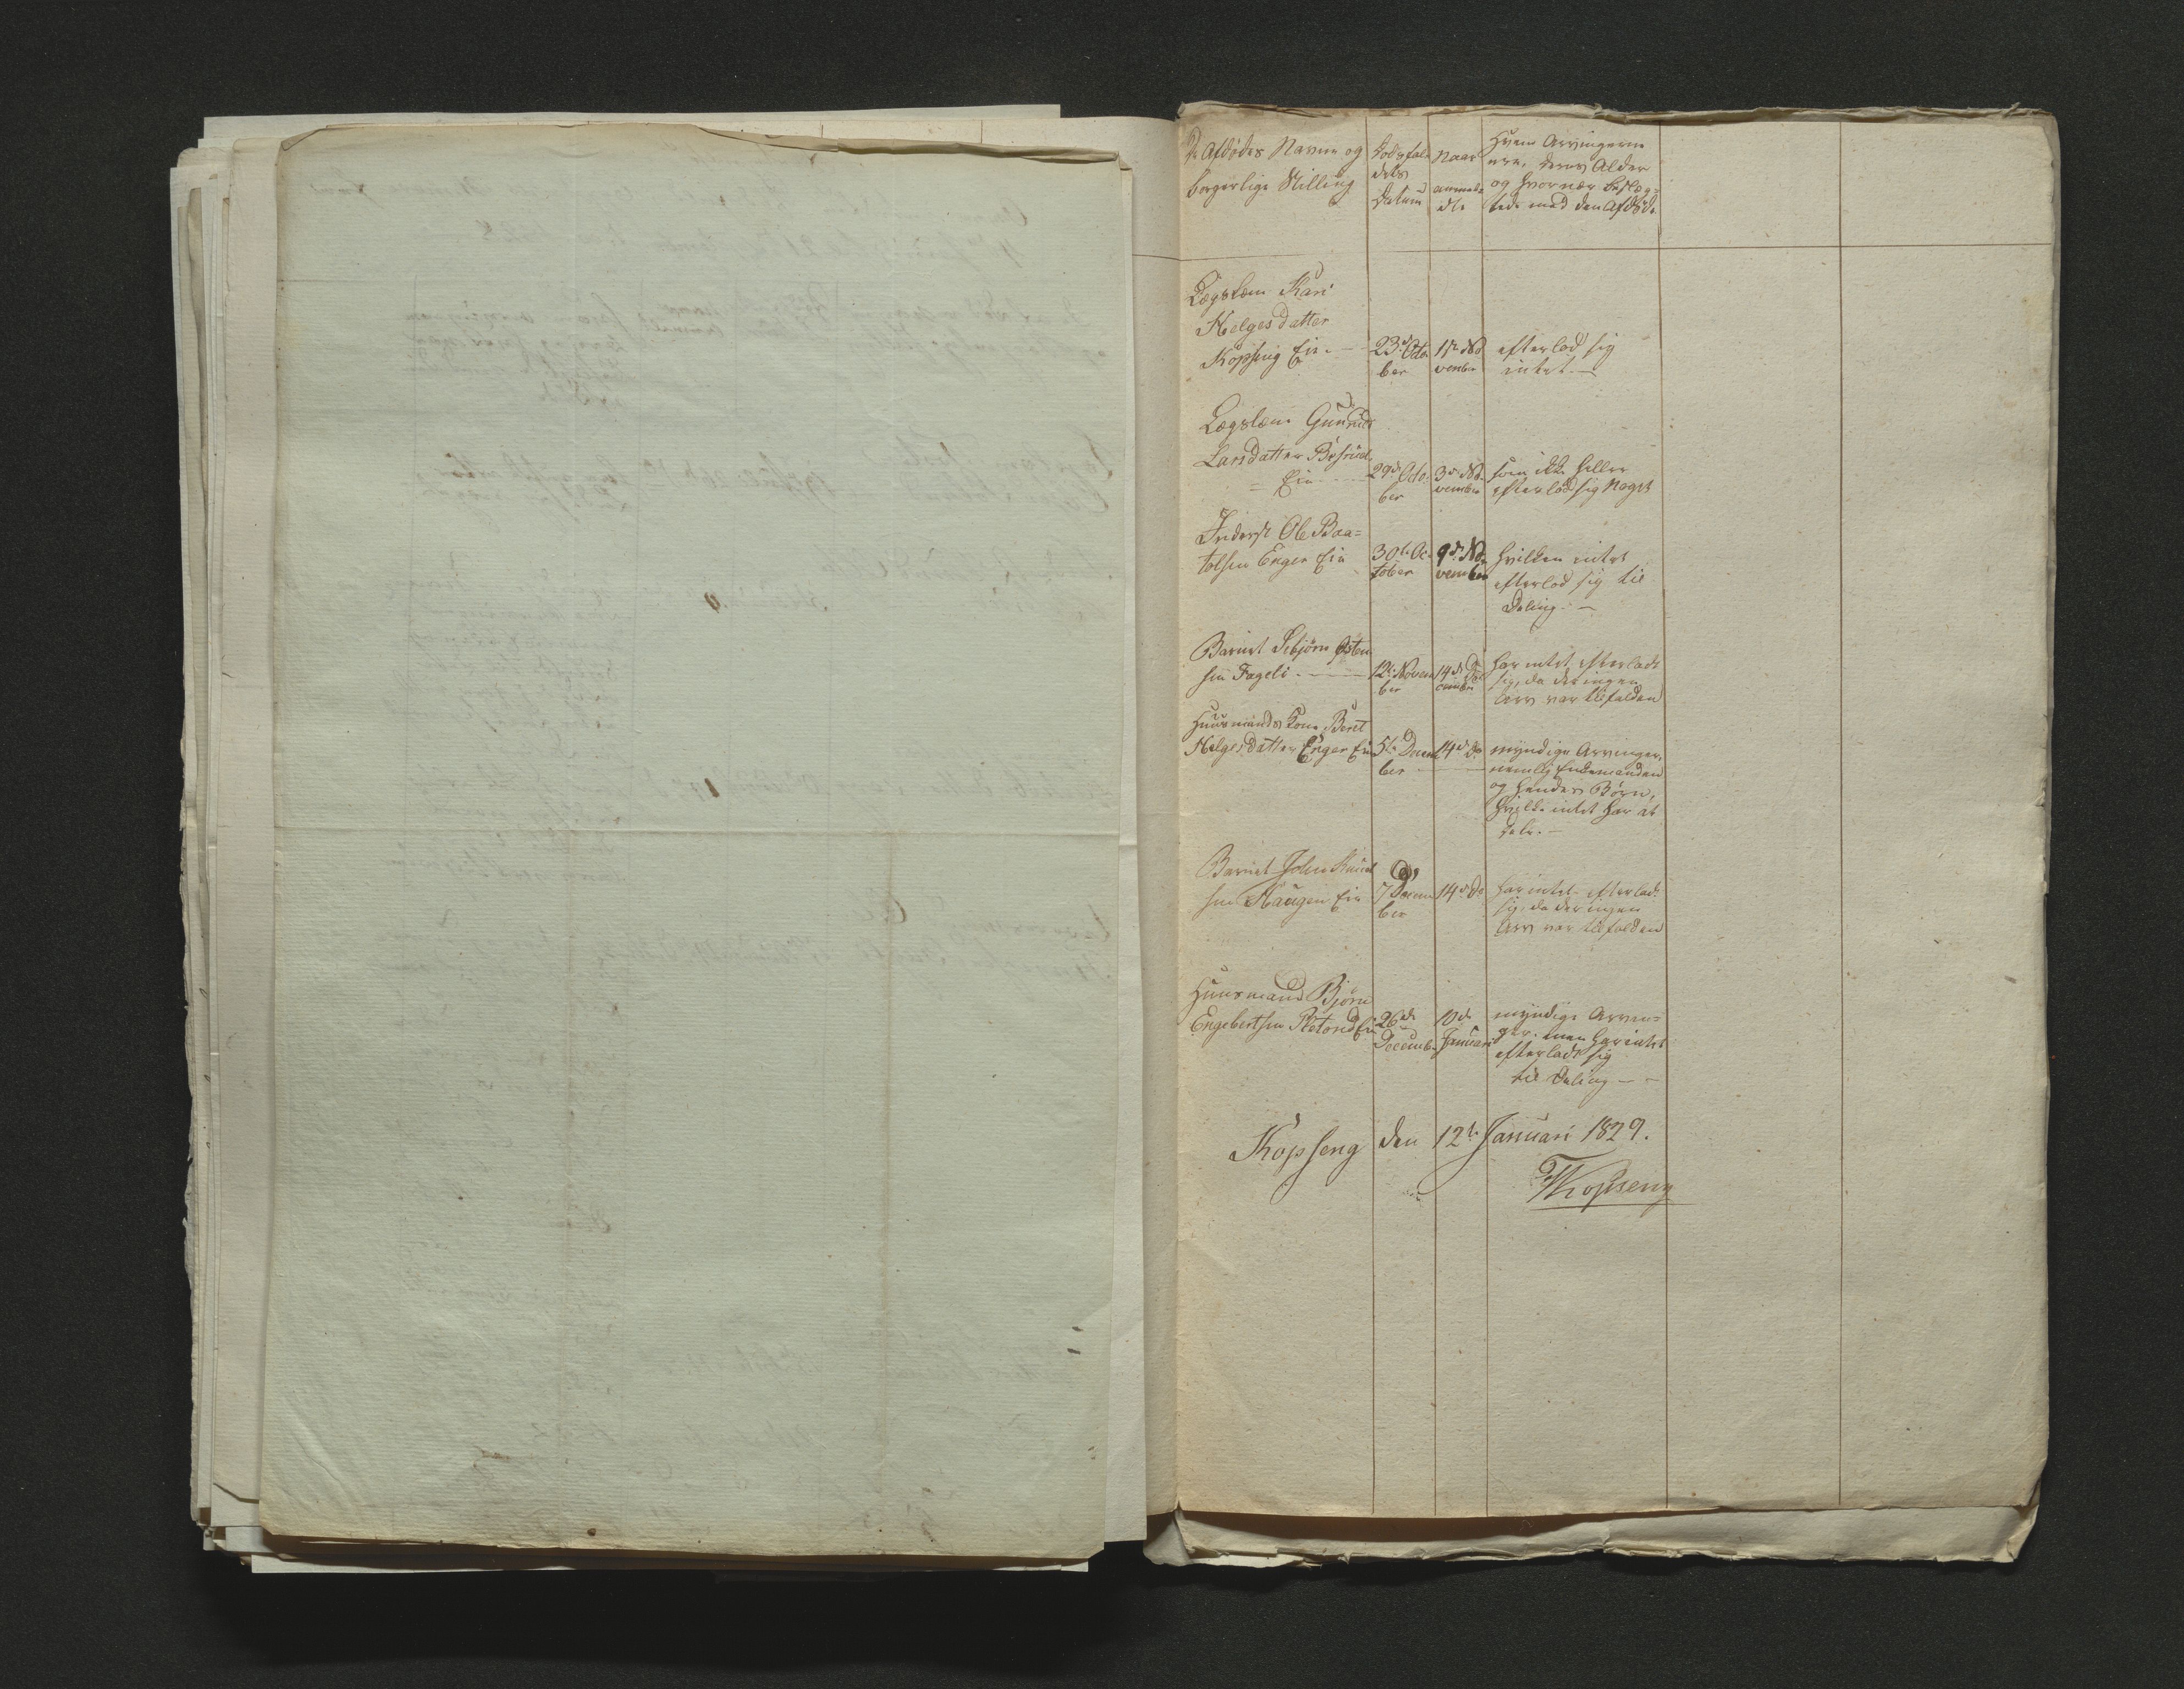 De Afdødes Navne og
borgerlige Stilling
Dødsfal-
dets
Datum
Naar
anmel-
dte
Hvem Arvingerne
ere, deres Alder
og hvornær beslæg-
tede med den Afdøde
Lægslem Kari
Helgesdatter
Kopseng Eie
23de Octo-
ber
1ste No-
vember
efterlod sig
intet.
Lægslem Gunnild
Larsdatter
Eie
29de Octo-
ber
3de No-
vember
som ikke heller
efterlod sig Noget
Inderst Ole Baa-
rdsen Enger Eie
30te Oc-
tober
9de No-
vember
hvilken intet
efterlod sig til
Deling.
Barnet Østen-
sen Fageli
12te Novem-
ber
14de De-
cember
har intet efterladt
sig, da der ingen
Arv var tilfalden
Huusmands Kone Berit
Helgesdatter Enger Eie
5te Decem-
ber
14de Do
myndige Arvinger,
nemlig Enkemanden
og hendes Børn,
hvilke intet har at
dele.
Barnet John Knud-
sen Haugen Eie
7 Decem-
ber
14de Do
har intet efterladt
sig, da der ingen
Arv var tilfalden
Huusmand Bjørn
Engebretsen Eie
26de
December
10de
Januari
myndige Arvin-
ger, men har intet
efterladt sig
til Deling
Kopseng den 12te Januari 1829.
Kopseng